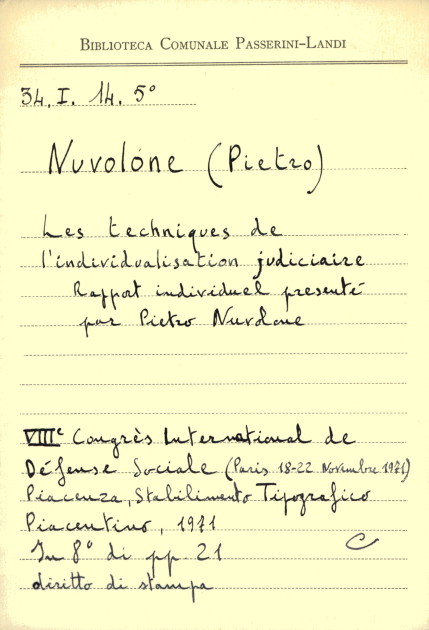 BIBLIOTECA COMUNALE PASSERINI-LANDI
34. I. 14. 5°
Nuvolone (Pietro)
Les techniques de
l'individualisation judiciaire
Rapport individuel presenté
par Pietro Nuvolone
VIIIe Congrès International de
Défense Sociale (Paris 18-22 Novembre 1971)
Piacenza, Stabilimento Tipografico
Piacentino, 1971
In 8° di pp. 21
diritto di stampa
C